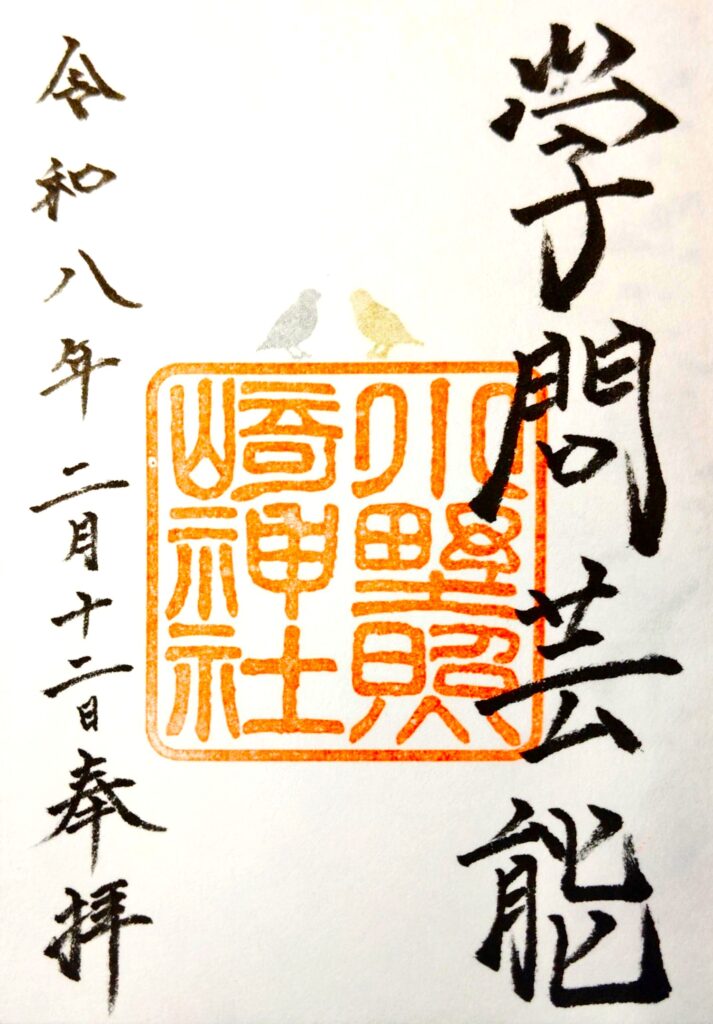 學問芸能
小野照
崎神社
令和八年二月十二日奉拝